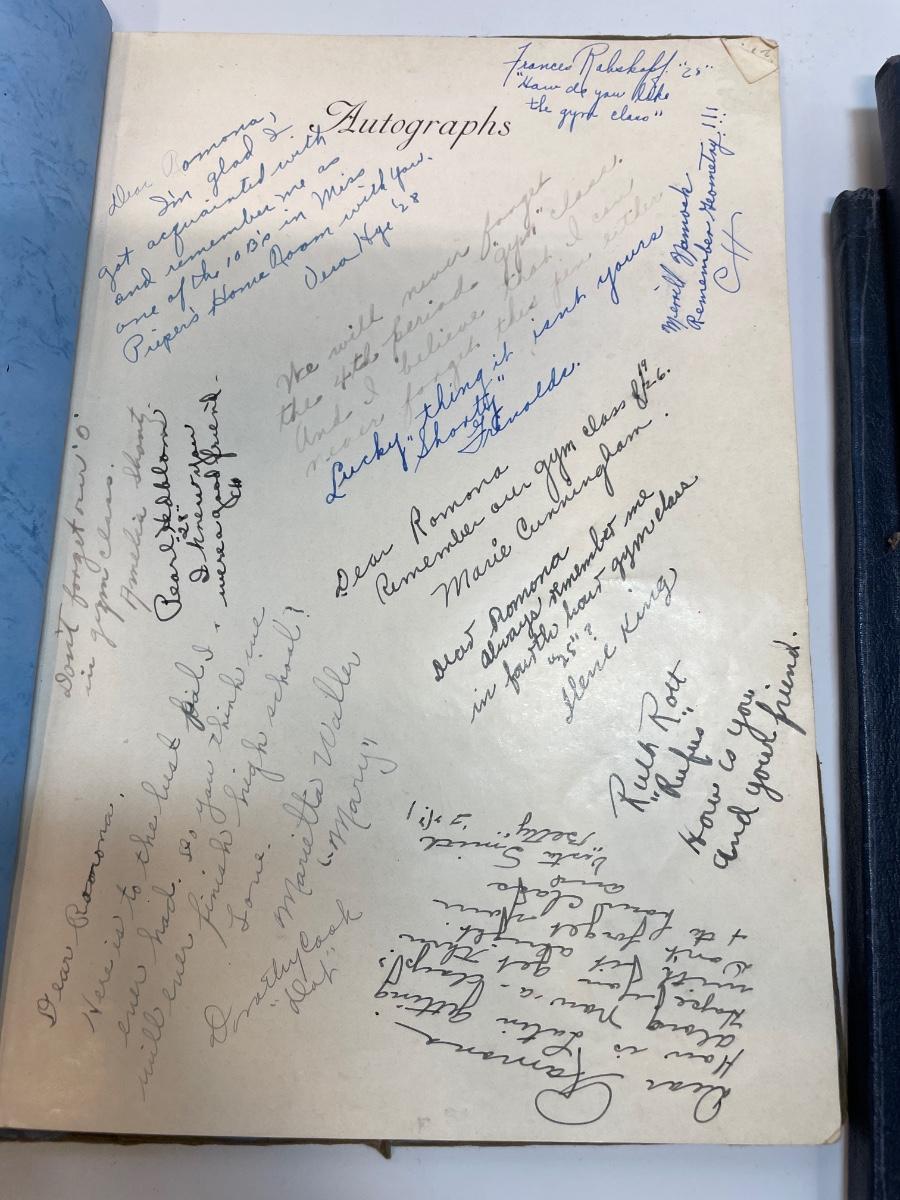 Autographs
Frances Rabskoff. "25"
"How do you like
the gym class"
Dear Romona,
I'm glad I
got acquainted with
and remember me as
one of the 10B's in Miss
Pieper's Home Room with you.
Vera Hye '28
Merrill Namock
Remember Geometry!!!
CH
We will never forget
the 4th period "gym" class.
And I believe that I can
never forget this pen either
Lucky thing it isnt yours
"Shorty"
Frenolds.
Don't forget our "O"
in gym class.
Amelia Shontz.
Pearl Hedblom
"28"
I knew you
were a good friend.
CH
Dear Romona
Remember our gym class
'26.
Marie Cunningham.
Dear Romona
always remember me
in fourth hour gym class
"25"?
Ilene King
Ruth Rott
"Rufus"
How is you
and your friend.
Dear Romona.
Here is to the best pal I
ever had. Do you think we
will ever finish high school?
Love.
Marietta Waller
"Mary"
Dorothy Cash
"Dot"
Dear Ramona,
How is Latin getting
along now a-days.
Hope you get thru
with it alright.
Don't forget
and
"Betty"